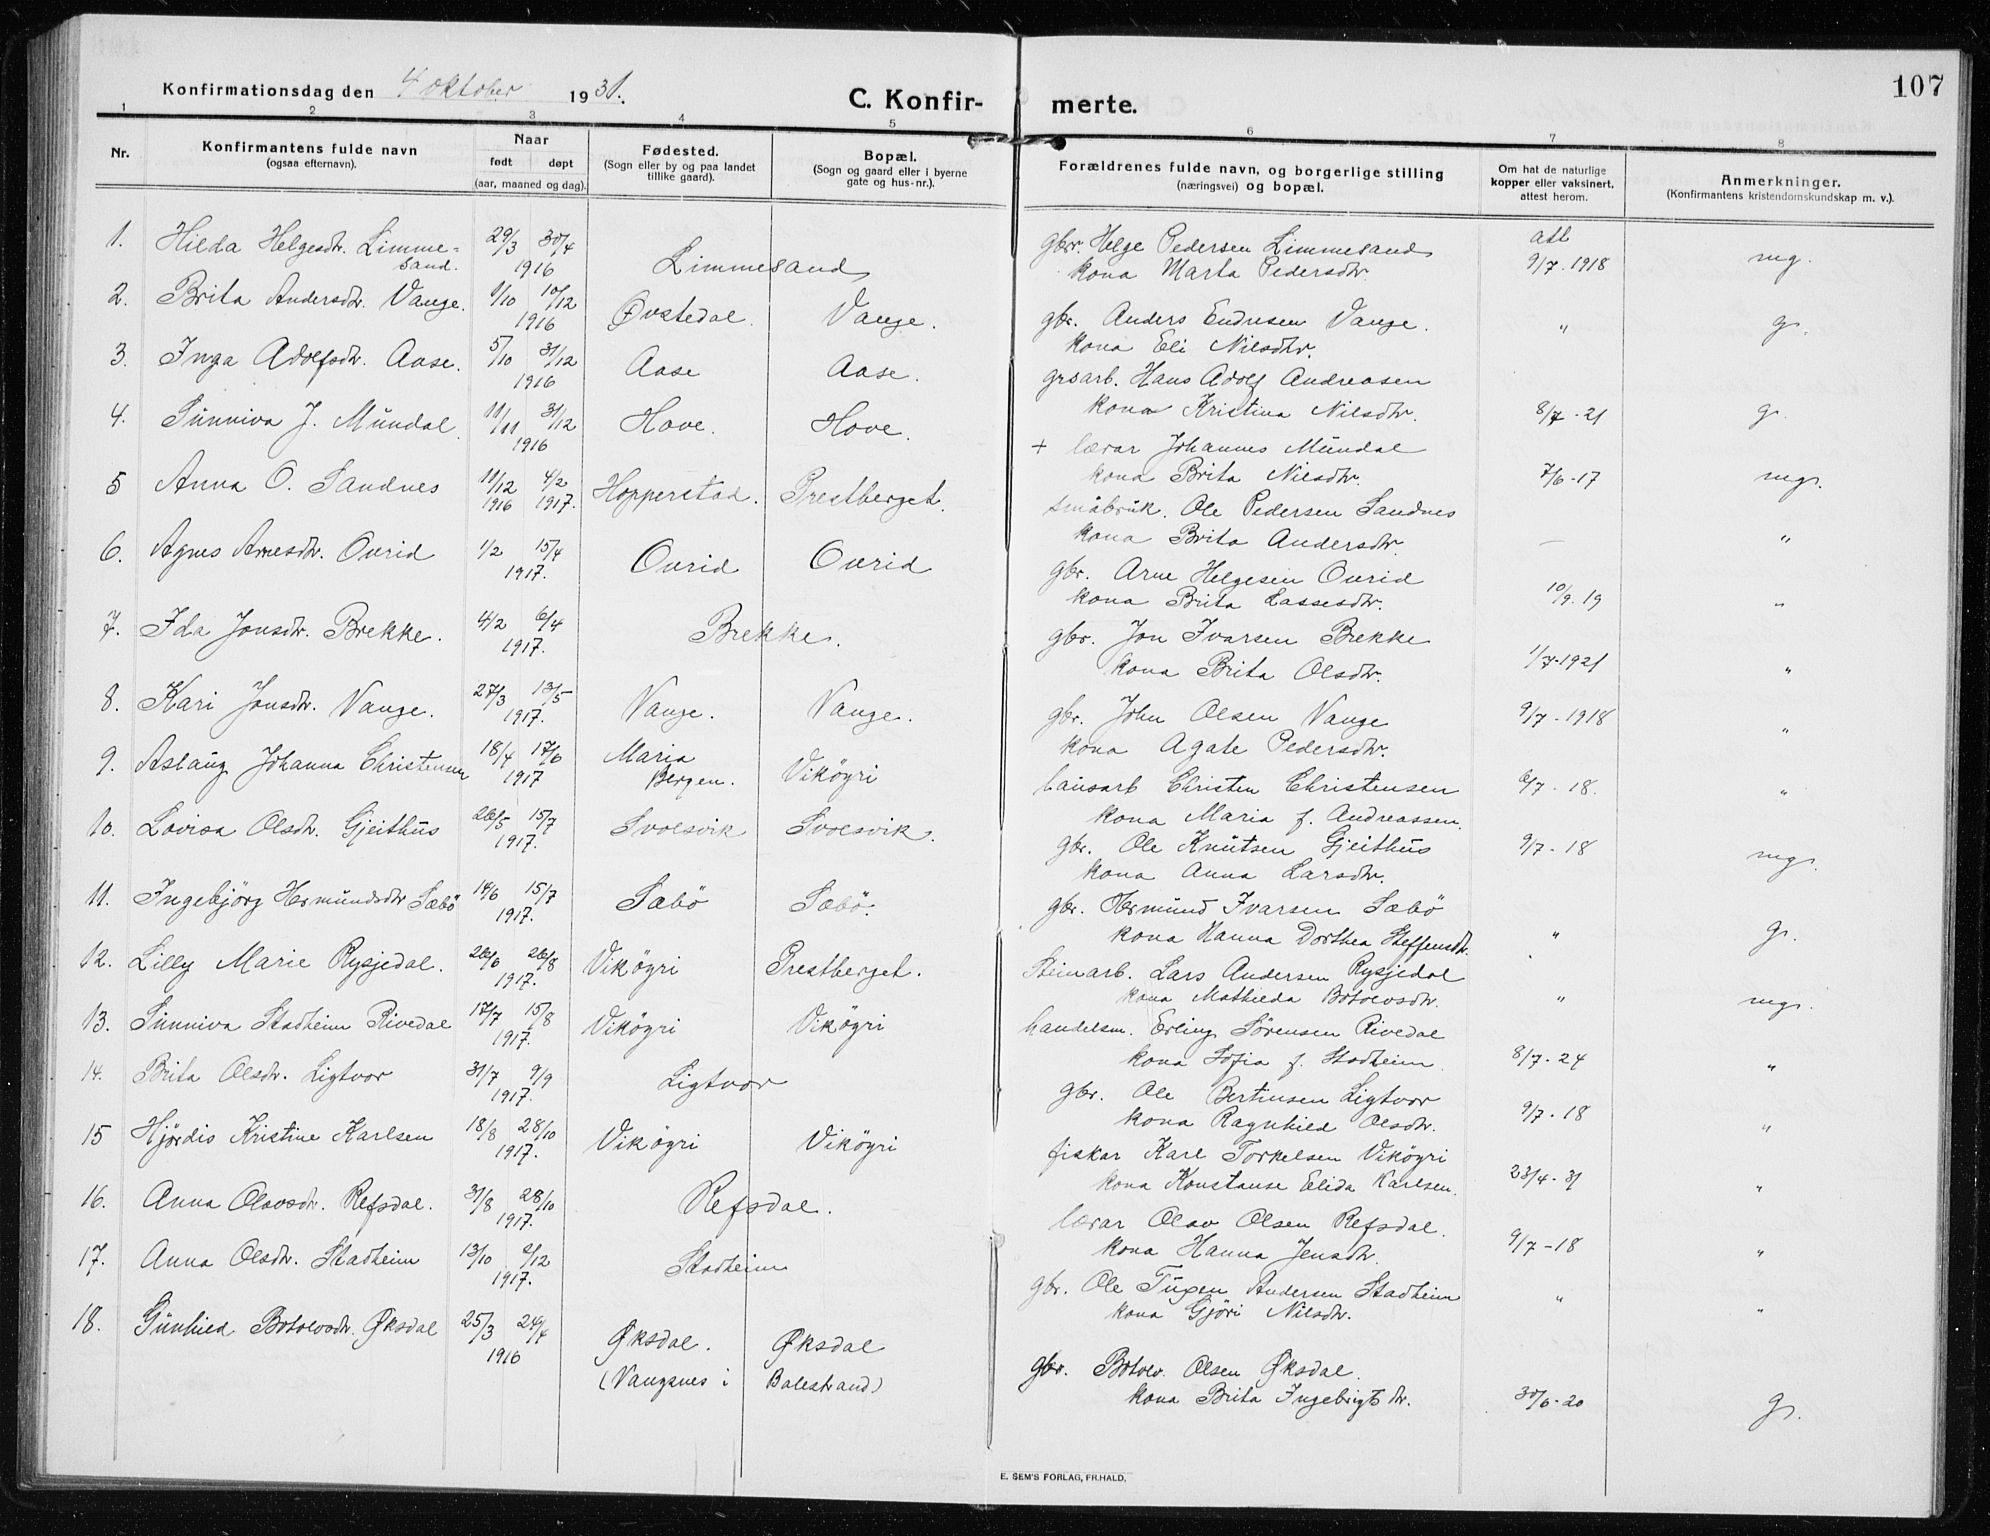 107
Konfirmationsdag den 4 oktober 1931.
C. Konfir- merte.
1 2 3 4 5 6 7 8
Nr.
Konfirmantens fulde navn
(ogsaa efternavn).
Naar
født døpt
(aar, maaned og dag).
Fødested.
(Sogn eller by og paa landet
tillike gaard).
Bopæl.
(Sogn og gaard eller i byerne
gate og hus-nr.).
Forældrenes fulde navn, og borgerlige stilling
(næringsvei) og bopæl.
Om hat de naturlige
kopper eller vaksinert,
attest herom.
Anmerkninger.
(Konfirmantens kristendomskundskap m. v.).
1. Hilda Helgesdtr. Limme= 29/3 30/4 gbr. Helge Pedersen Limmesand att
sand. 1916 Limmesand kona Marta Pedersdtr. 9/7-1918 mg.
2. Brita Andersdtr. Vange. 1/10 10/12
1916 Øvstedal. Vange. gbr. Anders Endresen Vange. " g.
kona Eli Nilsdtr.
3. Inga Adolfsdtr. Aase. 5/10 31/12
1916 Aase Aase. grsarb. Hans Adolf Andreasen
kona Kristina Nilsdtr. 8/7-21 g.
4. Sunniva J. Mundal 11/11 31/12
1916 Hove. Hove. + lærar Johannes Mundal
kona Brita Nilsdtr. 7/6-17 mg.
5 Anna O. Sandnes 11/12 4/2
1916 1917. Hopperstad. Prestberget. småbruk. Ole Pedersen Sandnes
kona Brita Andersdtr. — "
6. Agnes Arnesdtr. Ovrid 1/2 15/4
1917. Ovrid Ovrid gbr. Arne Helgesen Ovrid
kona Brita Lassesdtr. 10/9.19 "
7. Ida Jonsdtr. Brekke. 4/2 6/4
1917. Brekke. gbr. Jon Ivarsen Brekke
kona Brita Olsdtr. 1/7-1921 "
8. Kari Jonsdtr. Vange. 27/3 13/5
1917. Vange. Vange. gbr. John Olsen Vange 9/7-1918
kona Agate Pedersdtr. "
9. Aslaug Johanna Christensen 18/4 17/6
1917 Maria
Bergen. Vikøyri lausarb Christen Christensen 6/7-18. "
kona Maria f. Andreassen.
10. Lovisa Olsdtr. Gjeithus 26/5 15/7
1917. Svolsvik Svolsvik. gbr. Ole Knutsen Gjeithus 9/7-18 mg.
kona Anna Larsdtr.
11. Ingebjørg Hermundsdtr Sæbö 14/6 15/7
1917. Sæbö Sæbö. gbr. Hermund Ivarsen Sæbö
kona Hanna Dorthea Steffensdtr. " g.
12. Lilly Marie Rysjedal. 26/6 26/8
1917. Viköyri Prestberget. Steinarb. Lars Andersen Rysjedal
kona Mathilda Botolvsdtr. " mg.
13. Sunniva Stadheim Rivedal 17/7 15/8
1917. Viköyri Viköyri handelsm. Erling Sörensen Rivedal
kona Sofia f. Stadheim. 8/7-24 "
14. Brita Olsdtr. Ligtvor 31/7 9/9
1917. Ligtvor gbr. Ole Bertinsen Ligtvor
kona Ragnhild Olsdtr. 9/7-18 "
15 Hjördis Kristine Karlsen 18/8 28/10
1917. Viköyri Viköyri fiskar Karl Torkelsen Viköyri
kona Konstanse Elida Karlsen. 23/4-31 "
16. Anna Olavsdtr. Refsdal. 31/8 28/10
1917. Refsdal. lærar Olav Olsen Refsdal.
kona Hanna Jensdtr. 9/7-18 "
17. Anna Olsdtr. Stadheim 13/10 2/12
1917. Stadheim gbr. Ole Tuxen Andersen Stadheim
kona Gjöri Nilsdtr. " "
18. Gunhild Botolvsdtr. Øksdal 25/3 24/4
1916 Øksdal. Øksdal gbr. Botolv Olsen Øksdal.
(Vangsnes i Balestrand) kona Brita Ingebrigtsdtr. 30/6-20 g.
E. SEM'S FORLAG, FR.HALD.